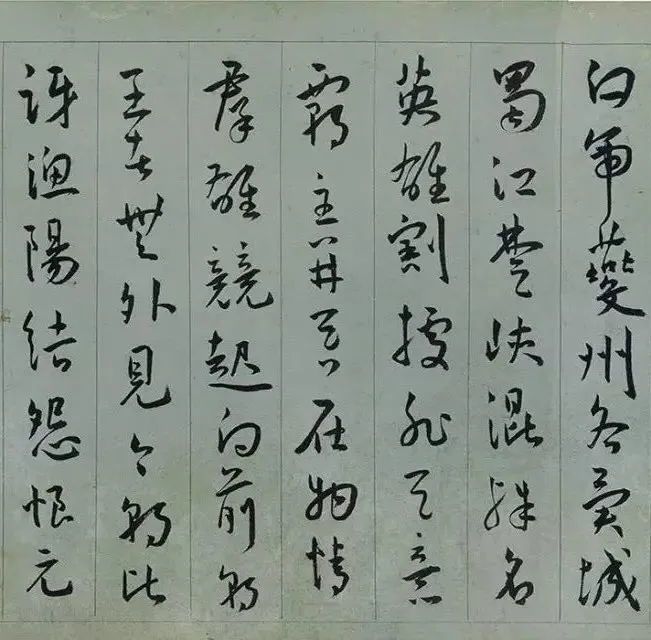 白帝夔州各異城
蜀江楚峽混殊名
英雄割據非天意
霸主并吞在物情
羣雄競起問前朝
王者無外見今朝比
訝漁陽結怨恨元